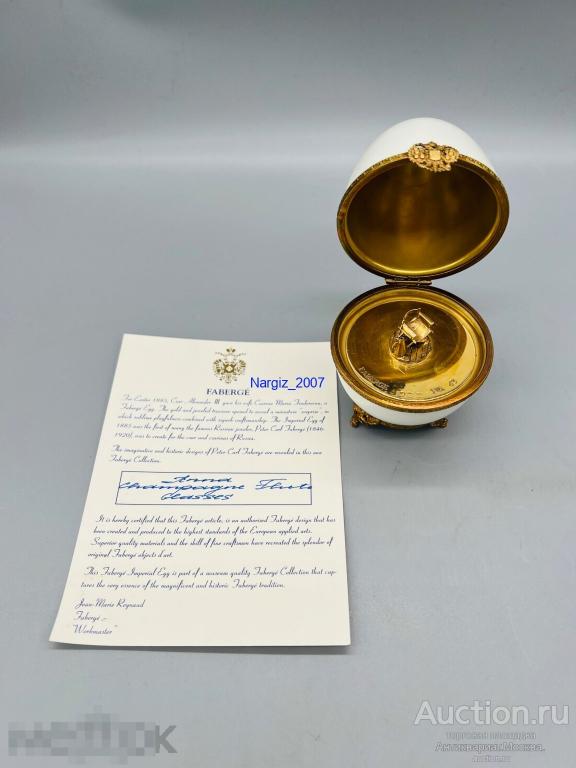 FABERGÉ
For Easter 1885, Czar Alexander III gave his wife Czarina Maria Feodorovna, a
Fabergé Egg. The gold and jeweled treasure opened to reveal a miniature "surprise", in
which sublime playfulness combined with superb craftsmanship. The Imperial Egg of
1885 was the first of many the famous Russian jeweler, Peter Carl Fabergé (1846-
1920), was to create for the czar and czarinas of Russia.
The imaginative and historic designs of Peter Carl Fabergé are revealed in this new
Fabergé Collection.
Anna
Champagne Flute
Glasses
It is hereby certified that this Fabergé article, is an authorised Fabergé design that has
been created and produced to the highest standards of the European applied arts.
Superior quality materials and the skill of fine craftsmen have recreated the splendor of
original Fabergé objects d'art.
This Fabergé Imperial Egg is part of a museum quality Fabergé Collection that cap-
tures the very essence of the magnificent and historic Fabergé tradition.
Jean-Marie Reynaud
Fabergé -
"Workmaster"
Nargiz_2007
FABERGÉ
МЕШОК
Auction.ru
торговая площадка
Антиквариат.Москва.
auction.ru